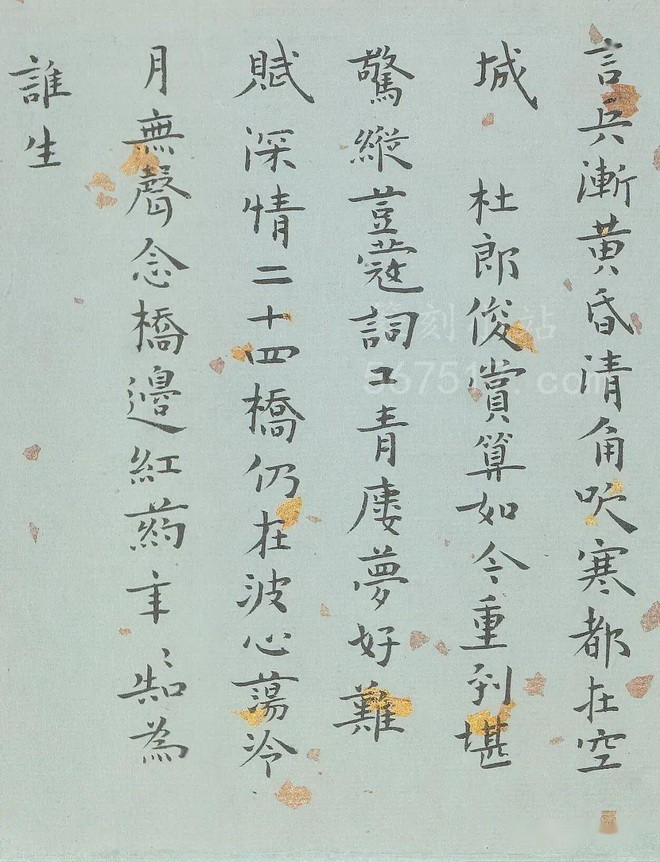 言兵漸黄昏清角吹寒都在空
城 杜郎俊賞算如今重到堪
驚縱荳蔻詞工青廔夢好難
賦深情二十四橋仍在波心蕩冷
月無聲念橋邊紅葯年〻知為
誰生